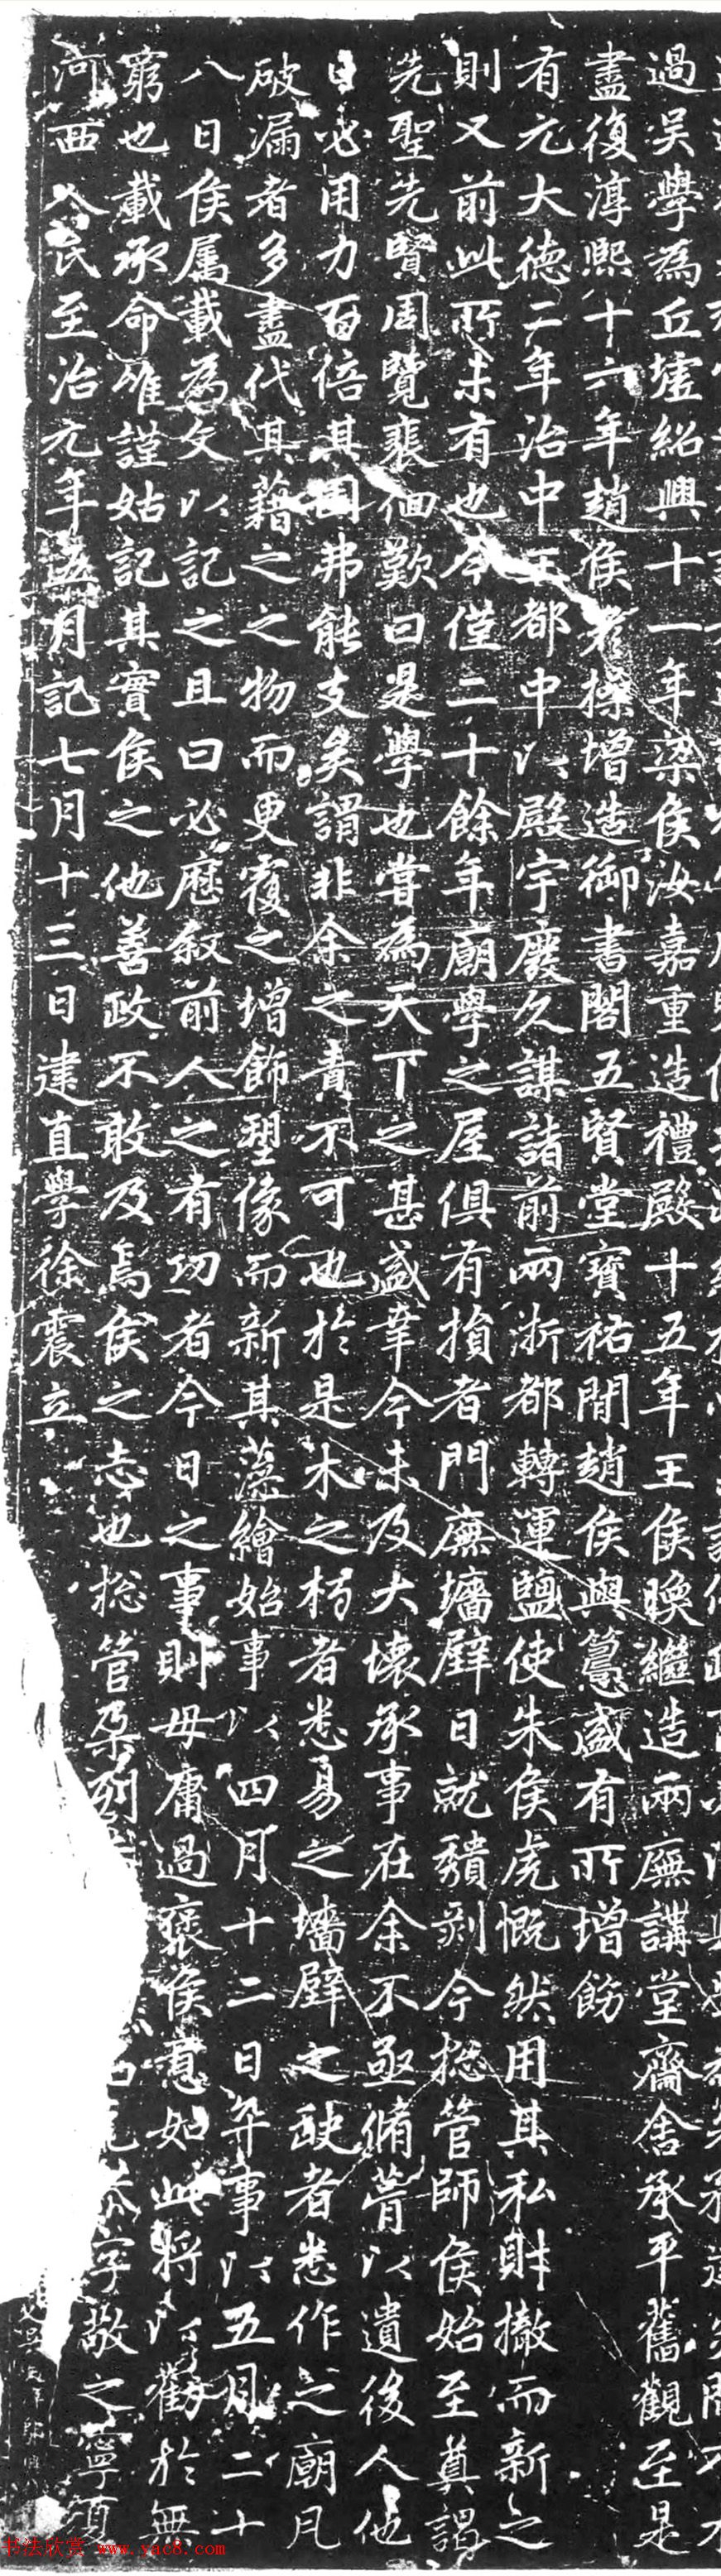 過吳學為丘墟紹興十一年梁侯汝嘉重造禮殿十五年王侯㬇繼造兩廡講堂齋舍承平舊觀至是
盡復淳熙十六年趙侯彥操增造御書閣五賢堂寶祐間趙侯與𥲅咸有所增飭
有元大德二年治中王都中以殿宇廢久謀諸前兩浙都轉運鹽使朱侯虎慨然用其私財撤而新之
則又前此所未有也今僅二十餘年廟學之屋俱有損者門廡墻壁日就穨剥今捴管師侯始至奠謁
先聖先賢周覽裴佪歎曰是學也嘗為天下之甚盛幸今未及大壞承事在余不亟脩葺以遺後人他
日必用力百倍其固弗能支矣謂非余之責不可也於是木之朽者悉易之墻壁之缺者悉作之廟凡
破漏者多盡代其藉之之物而更覆之增飾塑像而新其藻繪始事以四月十二日卒事以五月二十
八日侯属載為文以記之且曰必歷叙前人之有功者今日之事則毋庸過褒侯意如此將以勸於無
窮也載承命唯謹姑記其實侯之他善政不敢及焉侯之志也捴管朶列 字敬之寧夏
河西人氏至治元年五月記七月十三日建直學徐震立
书法欣赏 www.yac8.com